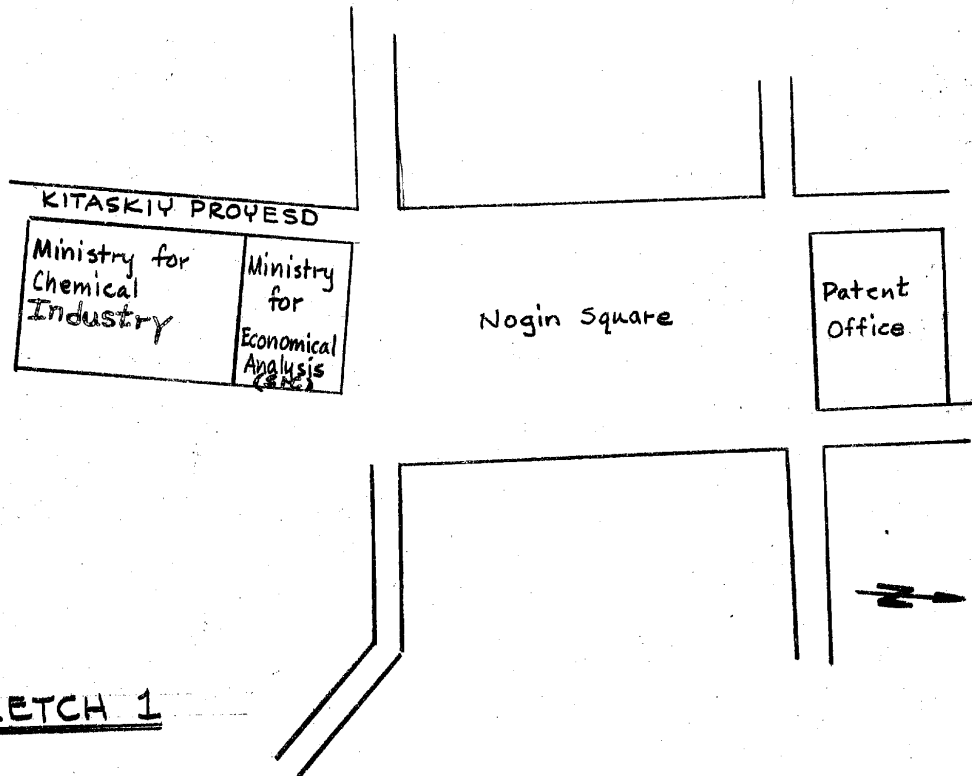 KITASKIY PROYESD
Ministry for
Chemical
Industry
Ministry
for
Economical
Analysis
(SIC)
Nogin Square
Patent
Office
N
ETCH 1